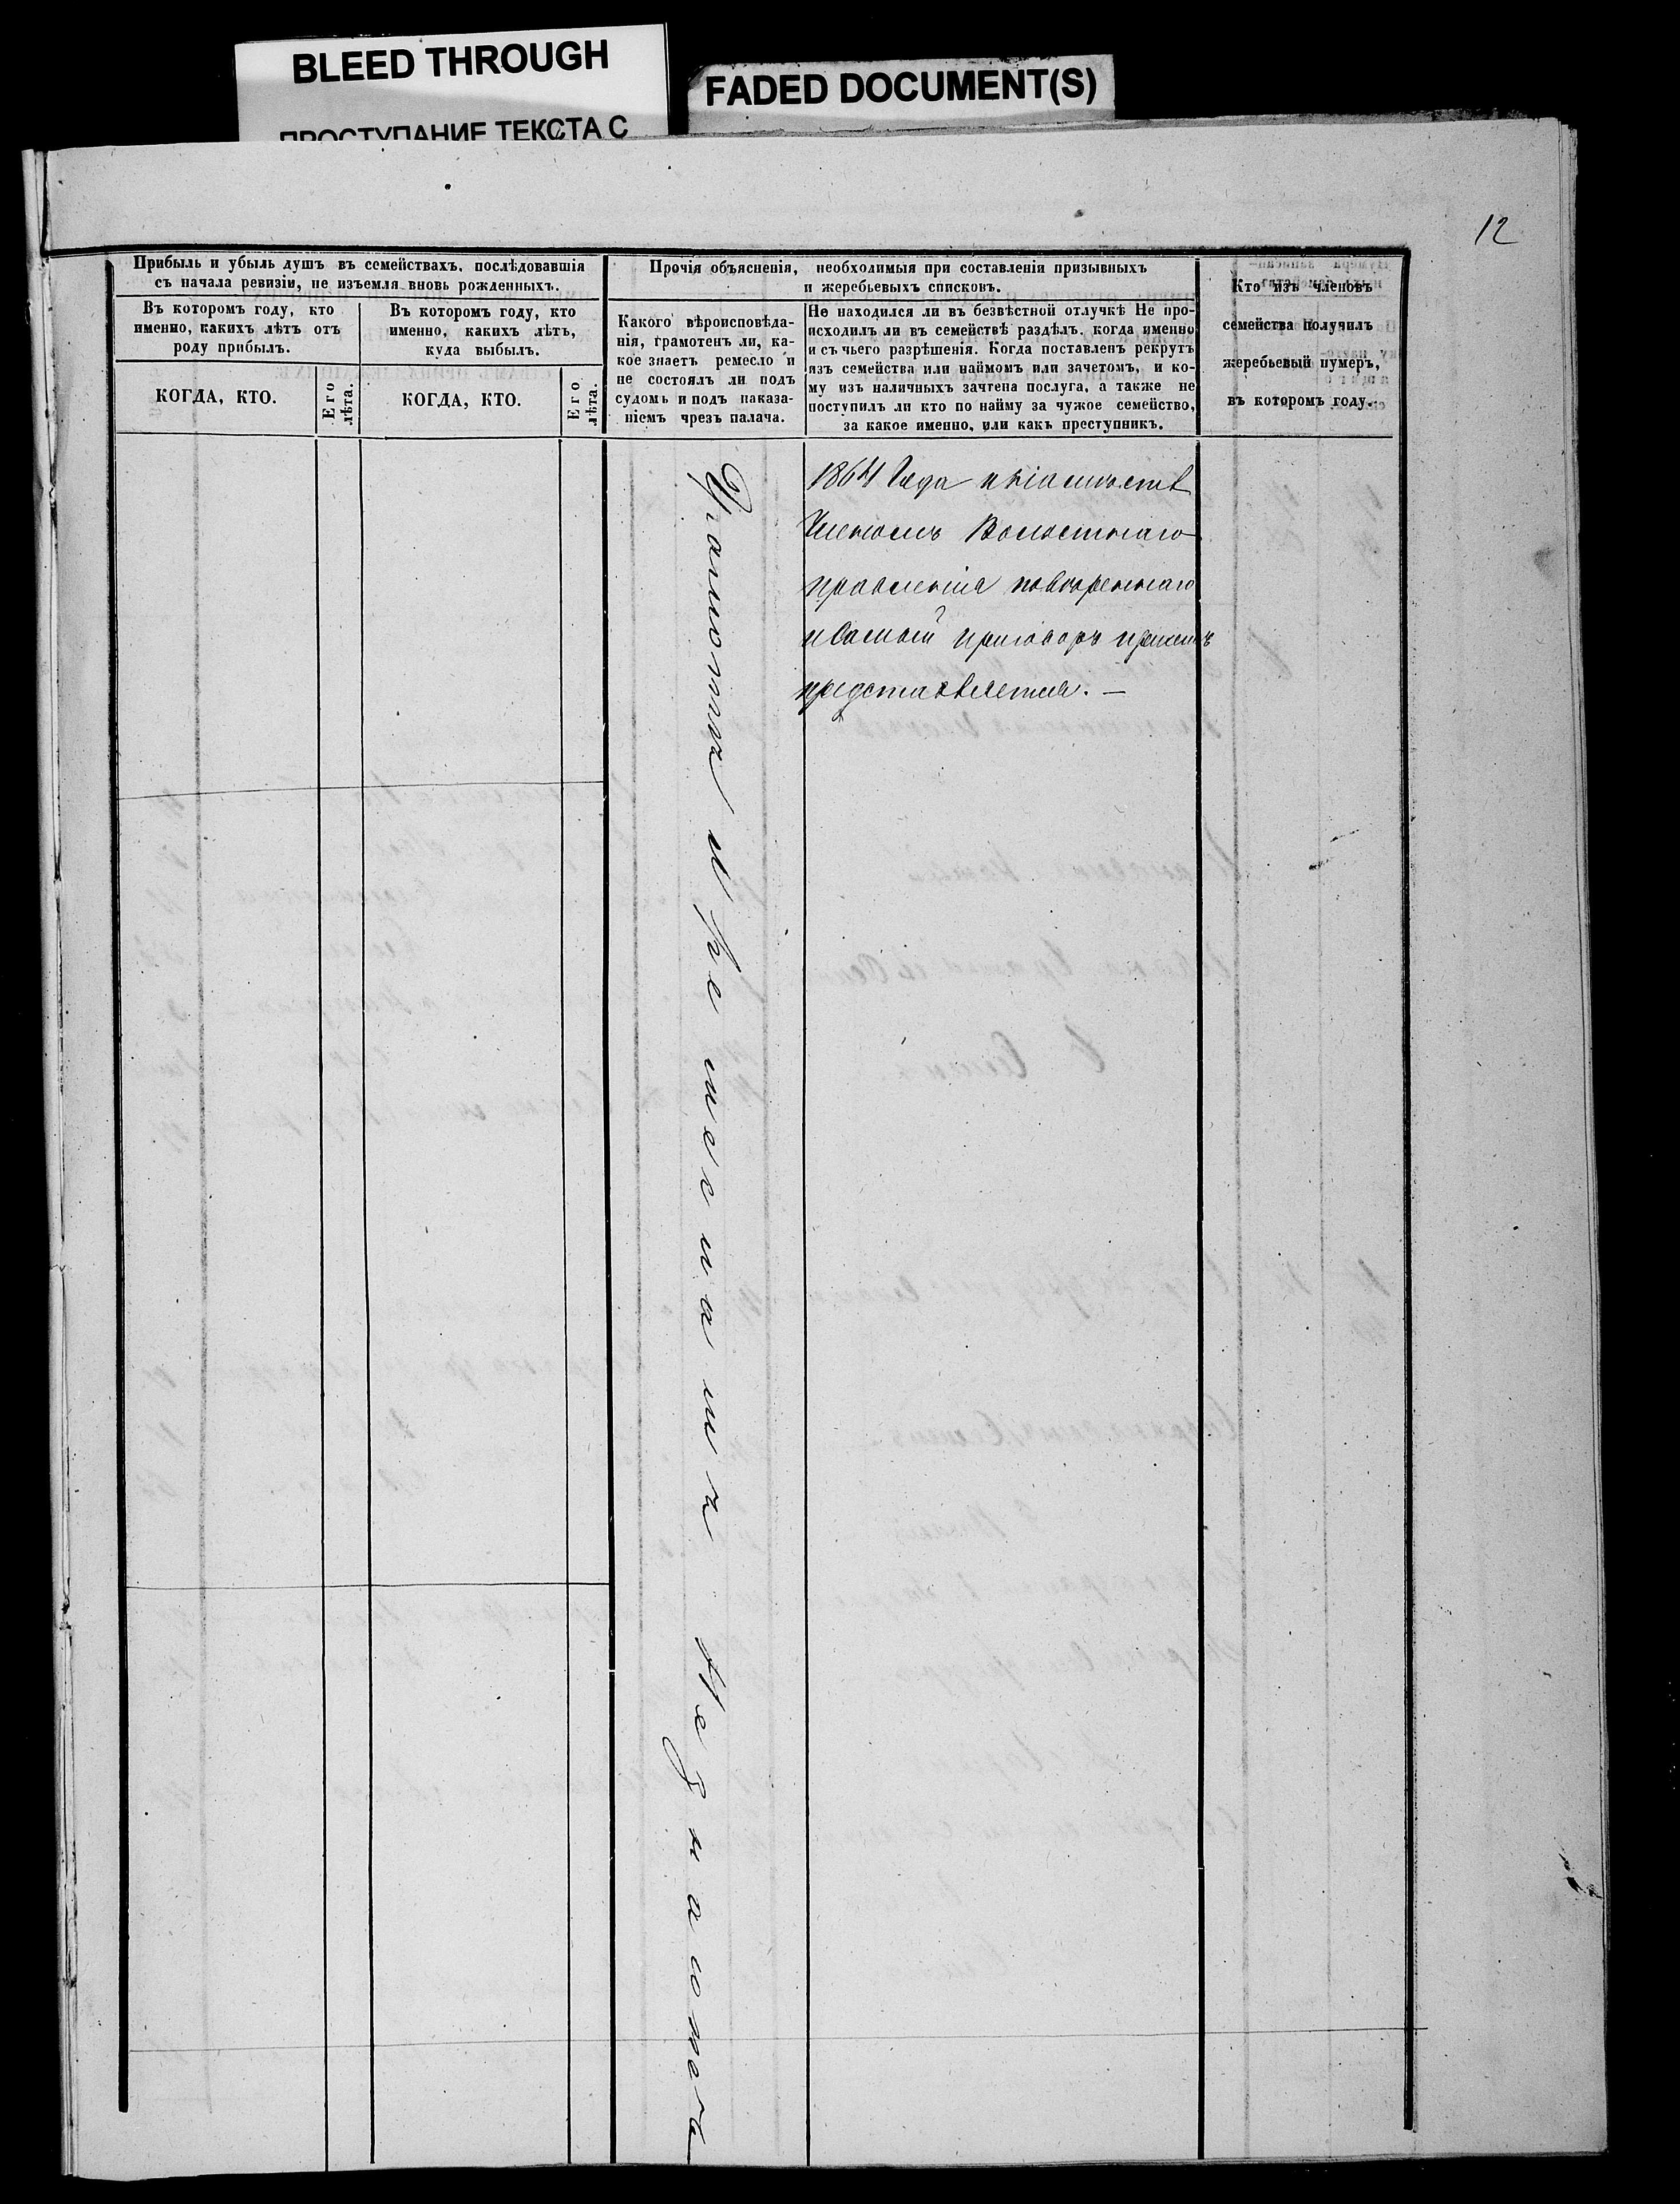 BLEED THROUGH
ПРОСТУПАНИЕ ТЕКСТА С
FADED DOCUMENT(S)
12
Прибыль и убыль душъ въ семействахъ, послѣдовавшія
съ начала ревизіи, не изъемля вновь рожденныхъ.
Въ которомъ году, кто
именно, какихъ лѣтъ отъ
роду прибылъ.
КОГДА, КТО.
Его
лѣта.
Въ которомъ году, кто
именно, какихъ лѣтъ,
куда выбылъ.
КОГДА, КТО.
Его
лѣта.
Прочія объясненія, необходимыя при составленіи призывныхъ
и жеребьевыхъ списковъ.
Какого вѣроисповѣда-
нія, грамотенъ ли, ка-
кое знаетъ ремесло и
не состоялъ ли подъ
судомъ и подъ наказа-
ніемъ чрезъ палача.
Не находился ли въ безвѣстной отлучкѣ Не про-
исходилъ ли въ семействѣ раздѣлъ, когда именно
и съ чьего разрѣшенія. Когда поставленъ рекрутъ
изъ семейства или наймомъ или зачетомъ, и ко-
му изъ наличныхъ зачтена послуга, а также не
поступилъ ли кто по найму за чужое семейство,
за какое именно, или какъ преступникъ.
Кто изъ членовъ
семейства получилъ
жеребьевый нумеръ,
въ которомъ году.
Грамоты и ремесла не знаютъ
1864 Года
Волостнаго
правленія
приговоръ
представляется. —